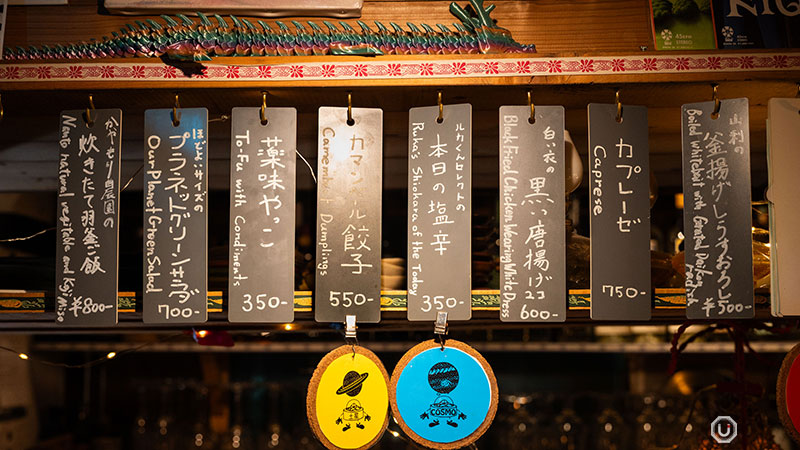 炊きたて羽釜ご飯
Nanto natural vegetable and Koji Miso
￥800-
ほどよいサイズの
プラネットグリーンサラダ
Our Planet Green Salad
700-
薬味やっこ
To-Fu with Condiments
350-
カマンベール餃子
Camembert Dumplings
550-
ルカくんセレクトの
本日の塩辛
Ruka's Shiokara of the Today
350-
白い衣の
黒い唐揚げ2コ
Black Fried Chicken Wearing White Dress
600-
カプレーゼ
Caprese
750-
釜揚げしらすおろし
Boiled whitebait with Grated Daikon
￥500-
COSMO